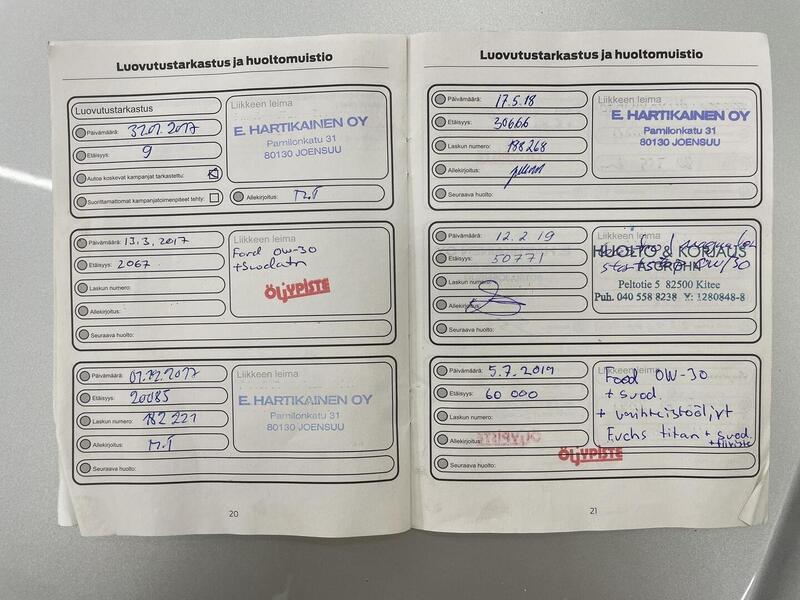 Luovutustarkastus ja huoltomuistio
Luovutustarkastus
Päivämäärä: 31.01.2017
Etäisyys: 9
Autoa koskevat kampanjat tarkastettu:
Suorittamattomat kampanjatoimenpiteet tehty:
Liikkeen leima
E. HARTIKAINEN OY
Pamilonkatu 31
80130 JOENSUU
Allekirjoitus: M.T
Päivämäärä: 13.3.2017
Etäisyys: 2067
Laskun numero:
Allekirjoitus:
Seuraava huolto:
Liikkeen leima
Ford 0W-30
+Suodatin
ÖLJYPISTE
Päivämäärä: 01.12.2017
Etäisyys: 20085
Laskun numero: 182 221
Allekirjoitus: M.T
Seuraava huolto:
Liikkeen leima
E. HARTIKAINEN OY
Pamilonkatu 31
80130 JOENSUU
20
Luovutustarkastus ja huoltomuistio
Päivämäärä: 17.5.18
Etäisyys: 30666
Laskun numero: 188268
Allekirjoitus:
Seuraava huolto:
Liikkeen leima
E. HARTIKAINEN OY
Pamilonkatu 31
80130 JOENSUU
Päivämäärä: 12.2 19
Etäisyys: 50771
Laskun numero:
Allekirjoitus:
Seuraava huolto:
Liikkeen leima
HUOLTO & KORJAUS
Peltotie 5 82500 Kitee
Puh. 040 558 8238 Y: 1280848-8
Päivämäärä: 5.7.2019
Etäisyys: 60 000
Laskun numero:
Allekirjoitus:
Seuraava huolto:
Liikkeen leima
Ford 0W-30
+ suod.
+ vaihteistoöljyt
Fuchs titan + suod.
+ tiiviste
ÖLJYPISTE
21